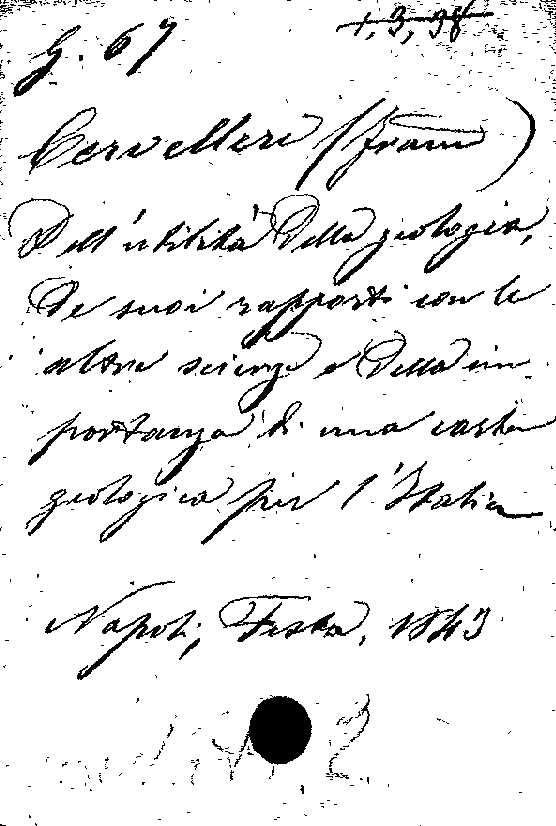 G. 67
1, 3, 38
Cervelleri (Franc)
Dell'utilità della geologia,
de suoi rapporti con le
altre scienze e della im
portanza di una carta
geologica per l'Italia
Napoli, Festa, 1843